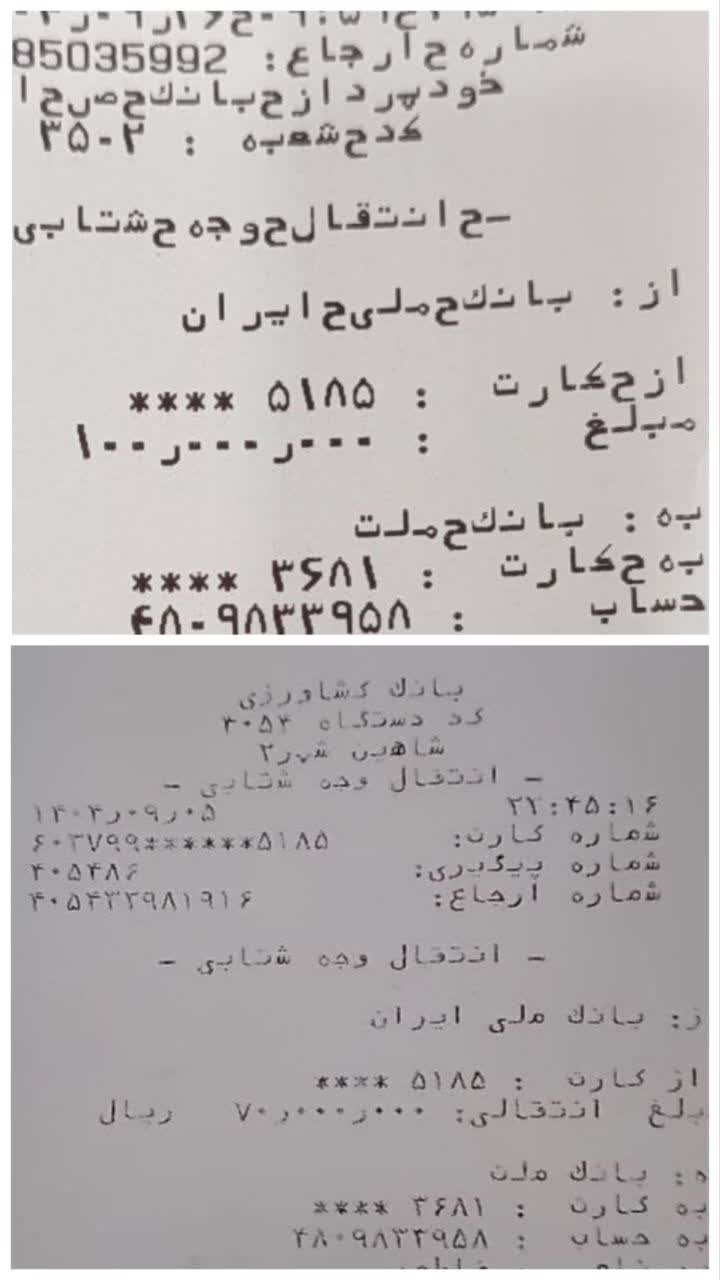 شماره‌ح‌ارجاع: 85035992
خودپردازح‌بانك‌ح‌صح‌ا
كدح‌شعبه : ۳۵۰۲
-ح‌انتقال‌ح‌وجه‌ح‌شتابی
از: بانك‌ح‌ملی‌ح‌ایران
ازح‌كارت : ۵۱۸۵ ****
مبلغ : ۱۰۰ر۰۰۰ر۰۰۰
به: بانك‌ح‌ملت
به‌ح‌كارت : ۳۶۸۱ ****
حساب : ۴۸۰۹۸۳۳۹۵۸
بانك كشاورزی
كد دستگاه ۴۰۵۴
شاهین شهر۲
- انتقال وجه شتابی -
۲۲:۴۵:۱۶ ۱۴۰۴ر۰۹ر۰۵
شماره كارت: ۶۰۳۷۹۹******۵۱۸۵
شماره پیگیری: ۴۰۵۴۸۶
شماره ارجاع: ۴۰۵۴۳۳۹۸۱۹۱۶
- انتقال وجه شتابی -
ز: بانك ملی ایران
از كارت : ۵۱۸۵ ****
بلغ انتقالی: ۷۰ر۰۰۰ر۰۰۰ ریال
ه: بانك ملت
به كارت : ۳۶۸۱ ****
به حساب : ۴۸۰۹۸۳۳۹۵۸